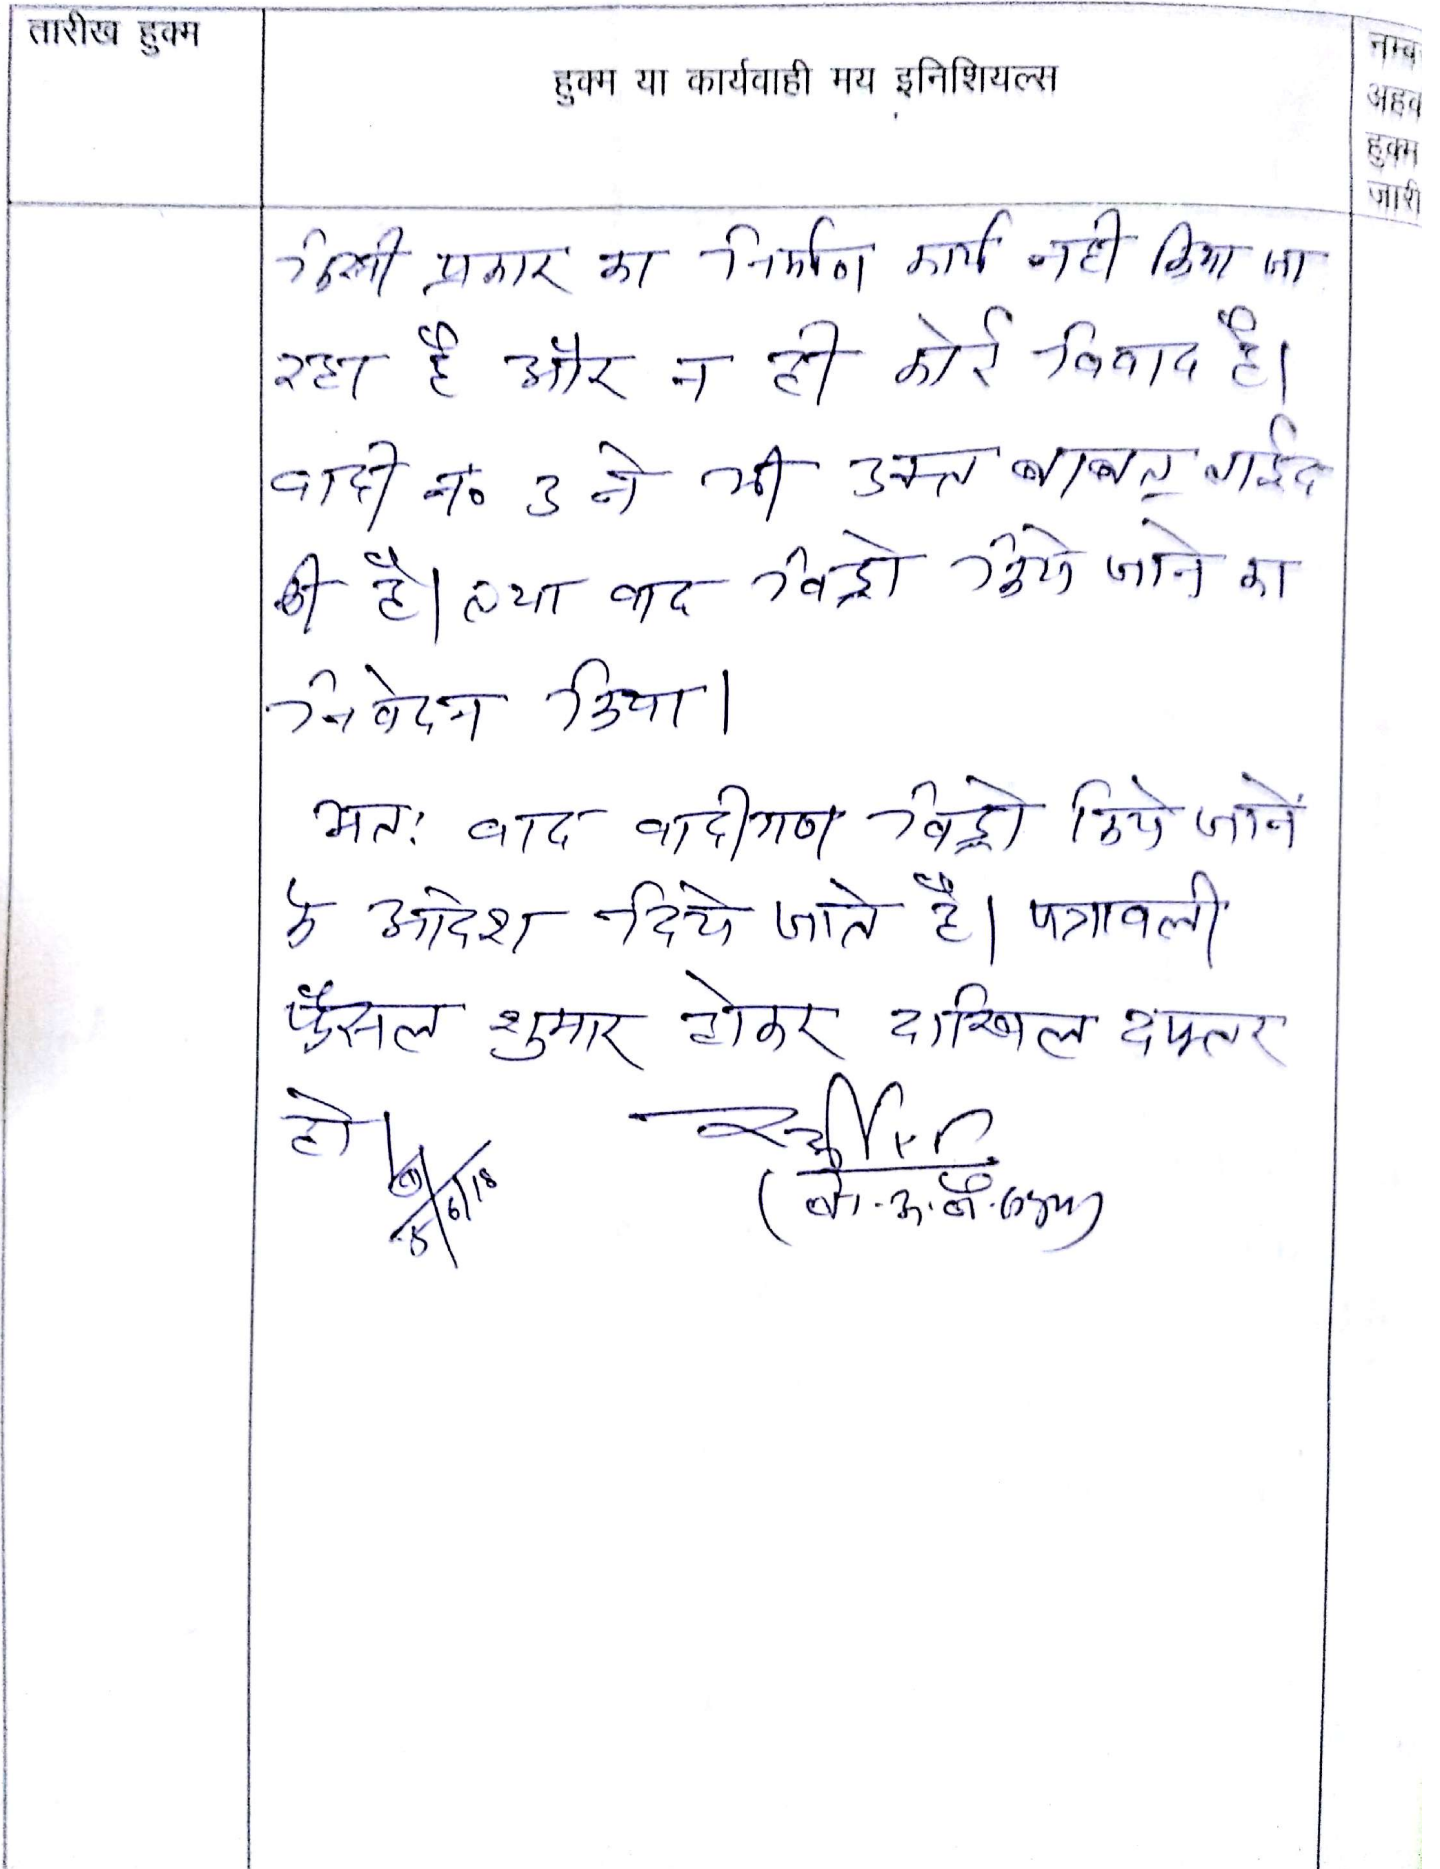 तारीख हुक्म
हुक्म या कार्यवाही मय इनिशियल्स
नम्ब
अहव
हुक्म
जारी
किसी प्रकार का निर्माण कार्य नही किया जा
रहा है और न ही कोई विवाद है।
वादी नं० 3 ने भी उक्त बाबत् ताईद
की है। तथा वाद विड्रो किये जाने का
निवेदन किया।
अतः वाद वादीगण विड्रो किये जाने
के आदेश दिये जाते है। पत्रावली
फैसल शुमार होकर दाखिल दफ्तर
हो।